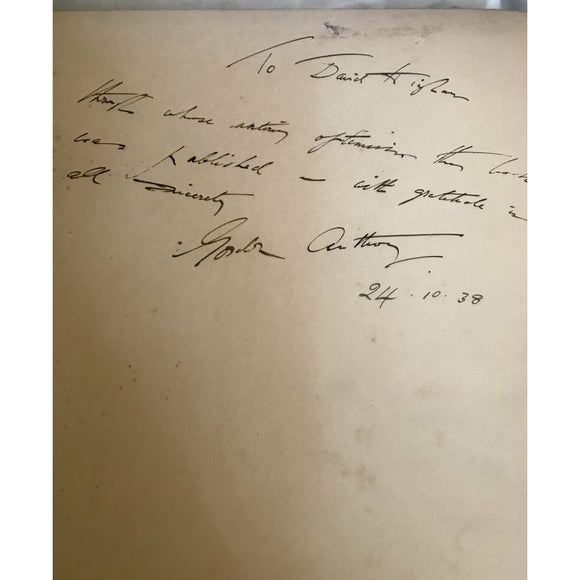 To David Higham
through whose untiring optimism this book
was published – with gratitude in
all sincerity
Gordon Anthony
24.10.38